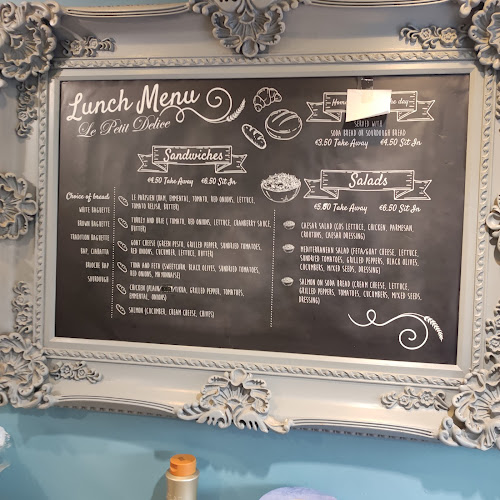 Lunch Menu
Le Petit Delice
Sandwiches
€4.50 Take Away €6.50 Sit In
Choice of bread
WHITE BAGUETTE
BROWN BAGUETTE
TRADITION BAGUETTE
BAP, CIABATTA
BRIOCHE BAP
SOURDOUGH
LE PARISIEN (HAM, EMMENTAL, TOMATO, RED ONIONS, LETTUCE,
TOMATO RELISH, BUTTER)
TURKEY AND BRIE ( TOMATO, RED ONIONS, LETTUCE, CRANBERRY SAUCE,
BUTTER)
GOAT CHEESE (GREEN PESTO, GRILLED PEPPER, SUNDRIED TOMATOES,
RED ONIONS, CUCUMBER, LETTUCE, BUTTER)
TUNA AND FETA (SWEETCORN, BLACK OLIVES, SUNDRIED TOMATOES,
RED ONIONS, MAYONNAISE)
CHICKEN (PLAIN/ TIKKA, GRILLED PEPPER, TOMATOES,
EMMENTAL, ONIONS)
SALMON (CUCUMBER, CREAM CHEESE, CHIVES)
day
SERVED WITH
SODA BREAD OR SOURDOUGH BREAD
€3.50 Take Away €4.50 Sit In
Salads
Take Away €6.50 Sit In
CAESAR SALAD (COS LETTUCE, CHICKEN, PARMESAN,
CROUTONS, CAESAR DRESSING)
MEDITERRANEAN SALAD (FETA/GOAT CHEESE, LETTUCE,
SUNDRIED TOMATOES, GRILLED PEPPERS, BLACK OLIVES,
CUCUMBERS, MIXED SEEDS, DRESSING)
SALMON ON SODA BREAD (CREAM CHEESE, LETTUCE,
GRILLED PEPPERS, TOMATOES, CUCUMBERS, MIXED SEEDS,
DRESSING)